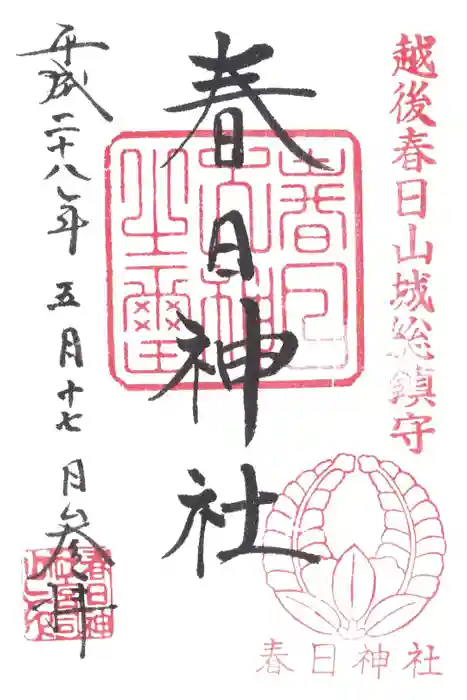 越後春日山城総鎮守
春日神社
平成二十八年五月十七日参拝
春日神社